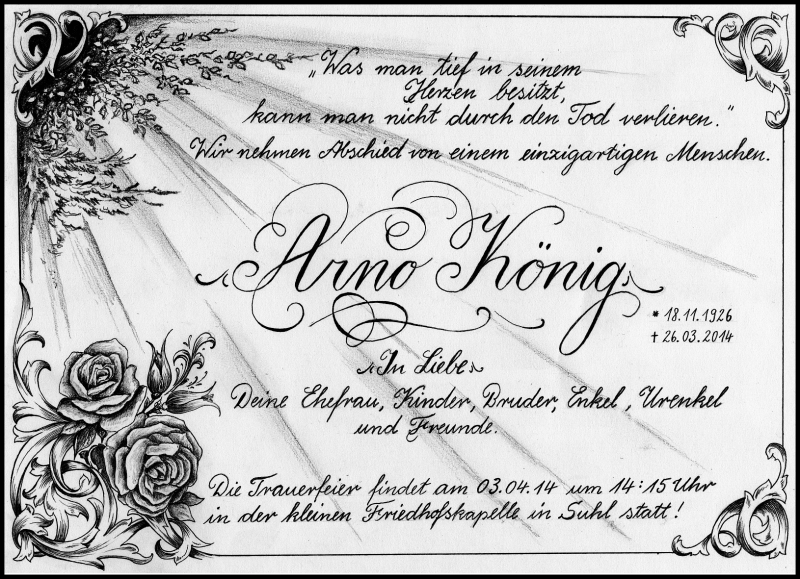 „Was man tief in seinem
Herzen besitzt,
kann man nicht durch den Tod verlieren."
Wir nehmen Abschied von einem einzigartigen Menschen.
Arno König
* 18.11.1926
† 26.03.2014
In Liebe
Deine Ehefrau, Kinder, Bruder, Enkel, Urenkel
und Freunde.
Die Trauerfeier findet am 03.04.14 um 14:15 Uhr
in der kleinen Friedhofskapelle in Suhl statt!